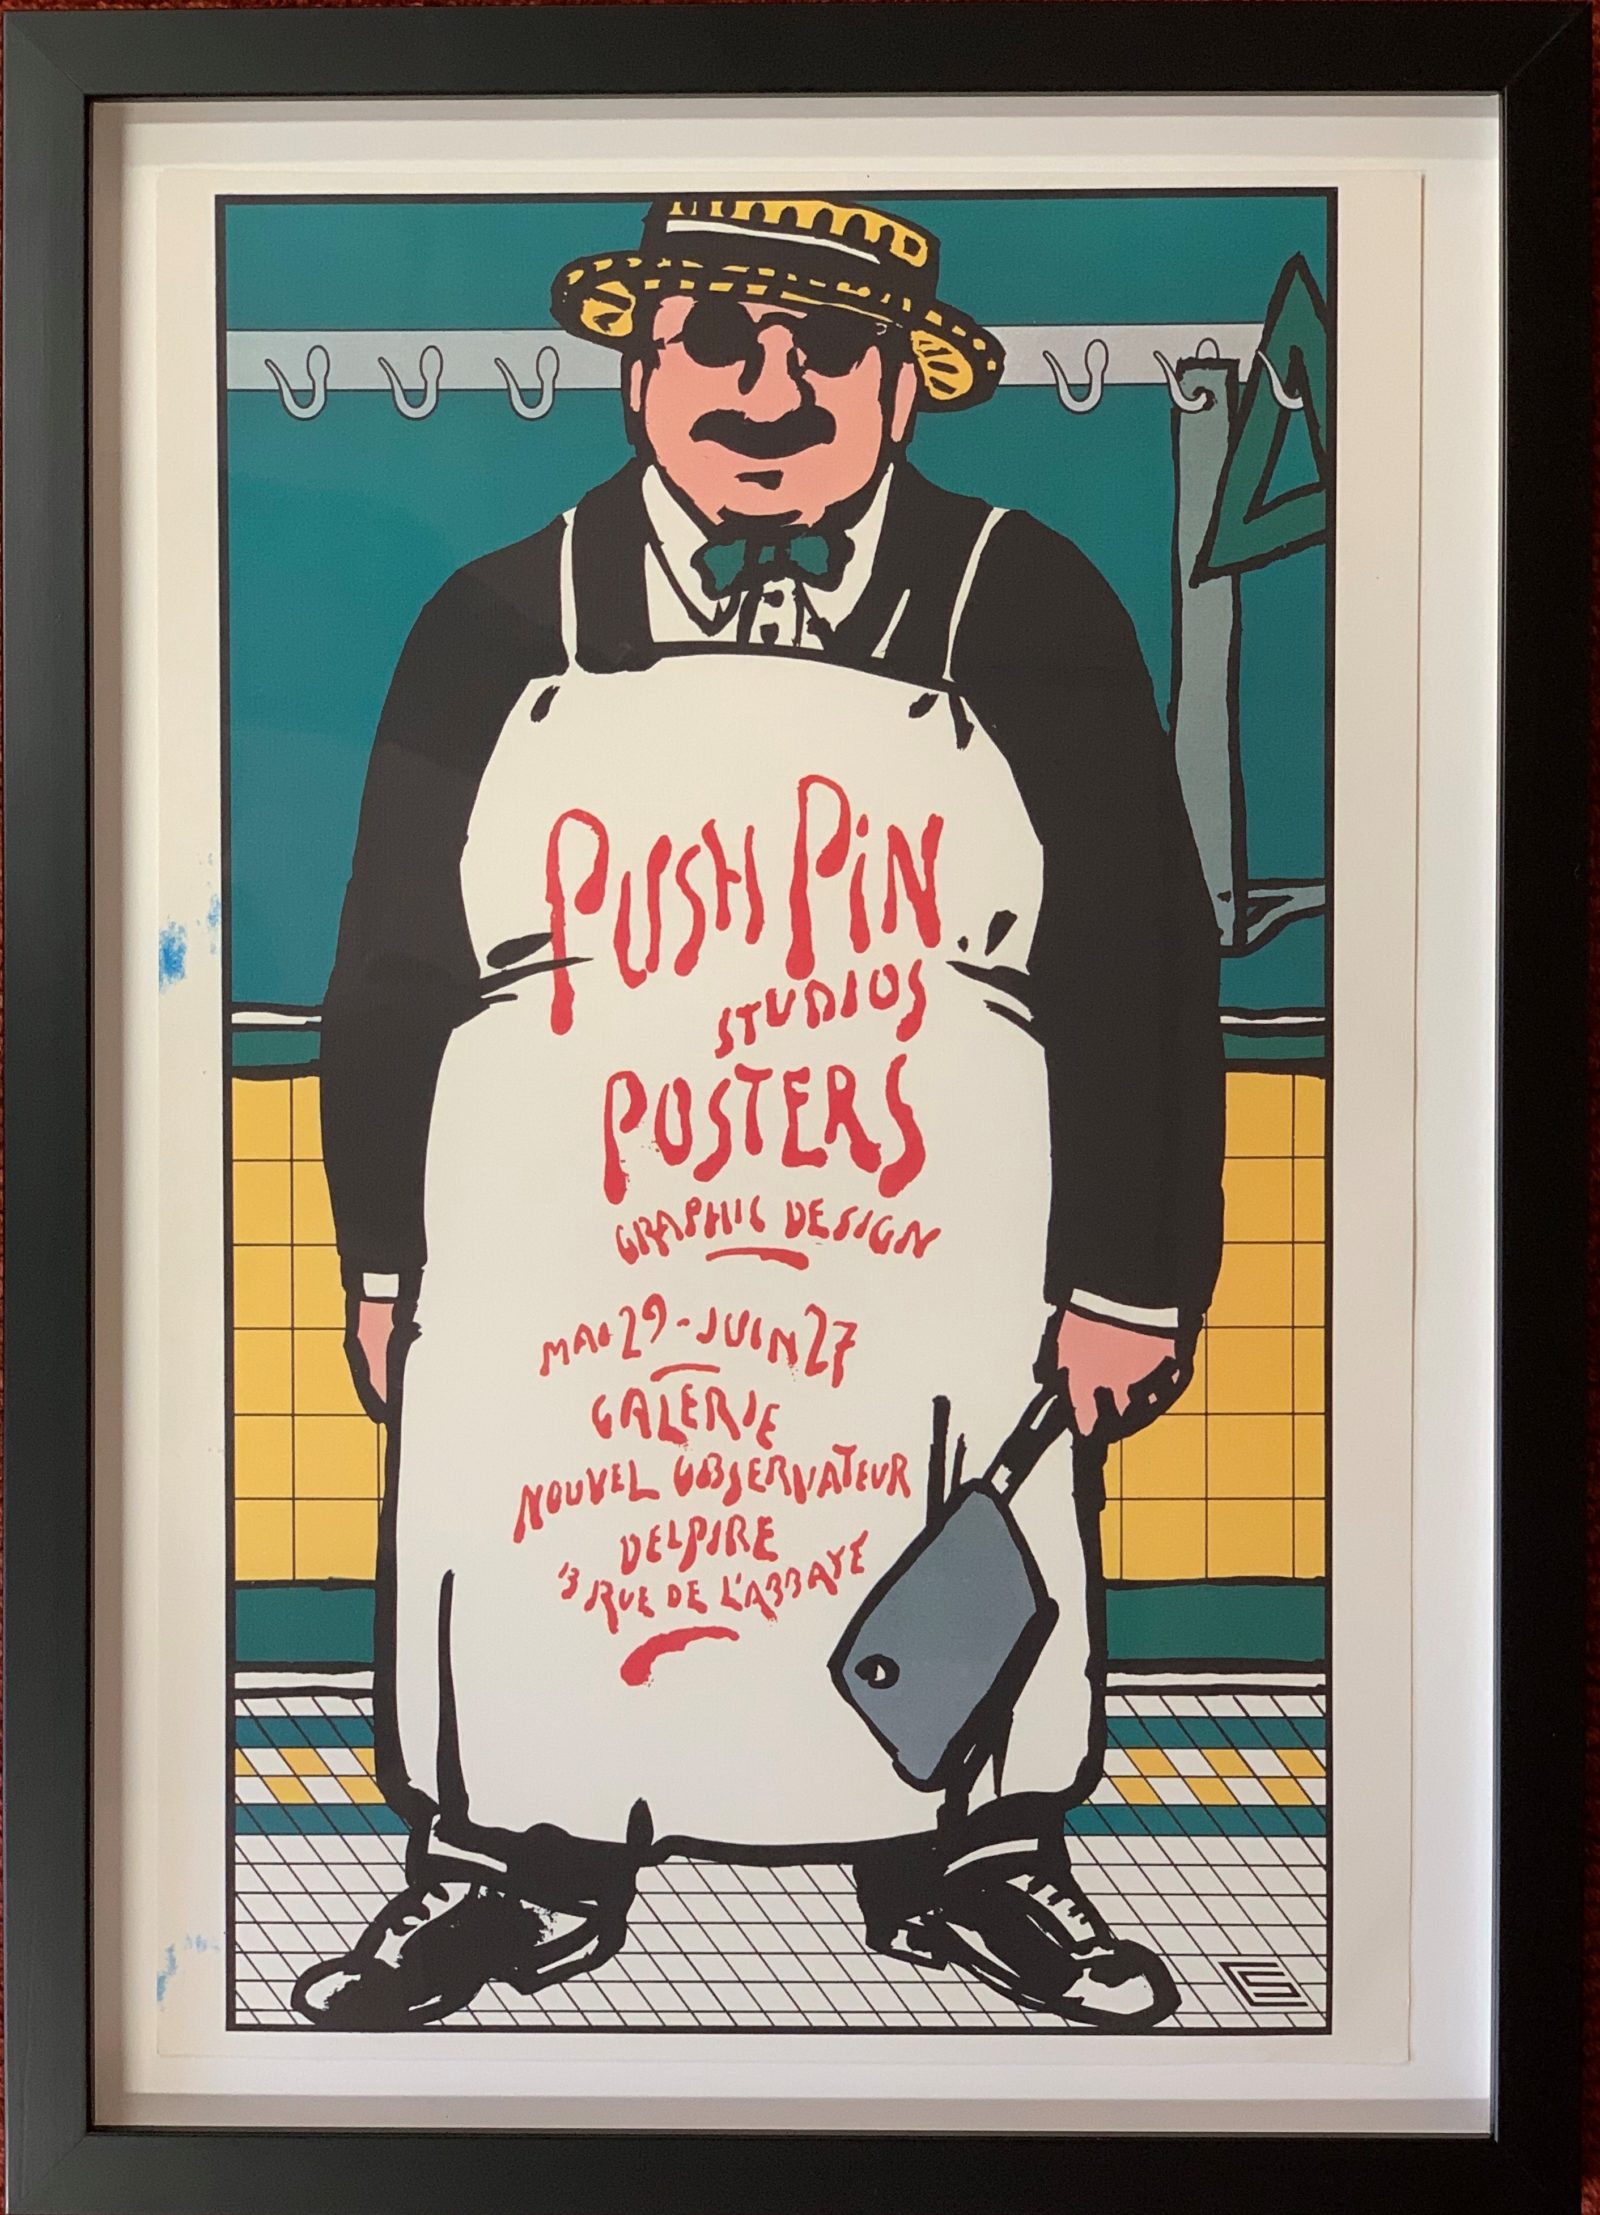 PUSH PiN
STUDIOS
POSTERS
GRAPHIC DESIGN
MAI 29-JUIN 27
GALERIE
NOUVEL OBSERVATEUR
DELPIRE
13 RUE DE L'ABBAYE